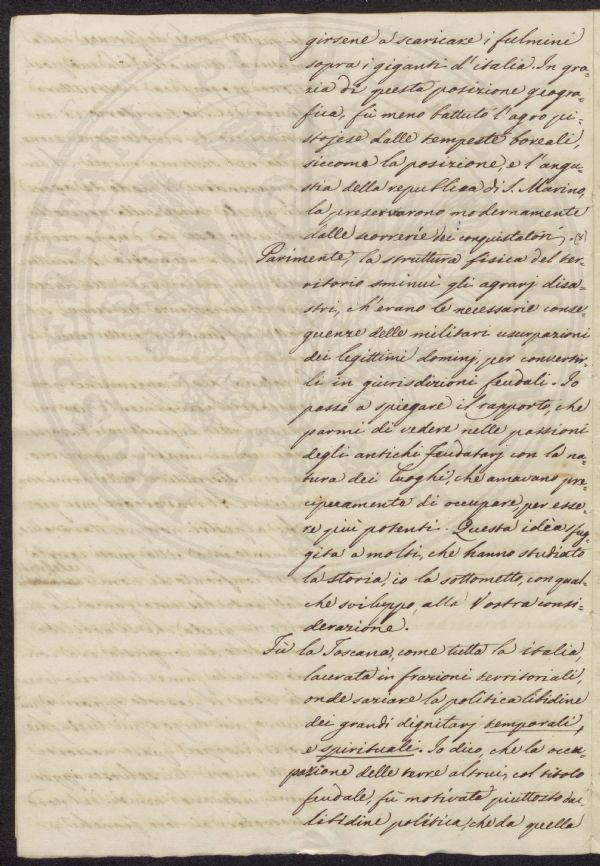 girsene a scaricare i fulmini
sopra i giganti d'italia. In gra-
zia di questa posizione geogra-
fica, fù meno battuto l'agro pi-
stojese dalle tempeste boreali,
siccome la posizione, e l'angu-
stia della republica di S. Marino,
la preservarono modernamente
dalle scorrerie dei conquistatori. (x)
Parimente, la struttura fisica del ter-
ritorio sminuì gli agrarj disa-
stri, ch'erano le necessarie conse-
guenze delle militari usurpazioni
dei legittimi dominj, per convertir-
li in giurisdizioni feudali. Io
passo a spiegare il rapporto, che
parmi di vedere nelle passioni
degli antichi Feudatarj con la na-
tura dei luoghi, che amavano pre-
cipuamente di occupare, per esse-
re più potenti. Questa idèa sfug-
gita a molti, che hanno studiato
la storia, io la sottometto, con qual-
che sviluppo, alla Vostra consi-
derazione.
Fù la Toscana, come tutta la italia,
lacerata in frazioni territoriali,
onde saziare la politica libidine
dei grandi dignitarj temporali,
e spirituali. Io dico, che la occu-
pazione delle terre altrui, col titolo
feudale, fù motivata piuttosto da
libidine politica, che da quella